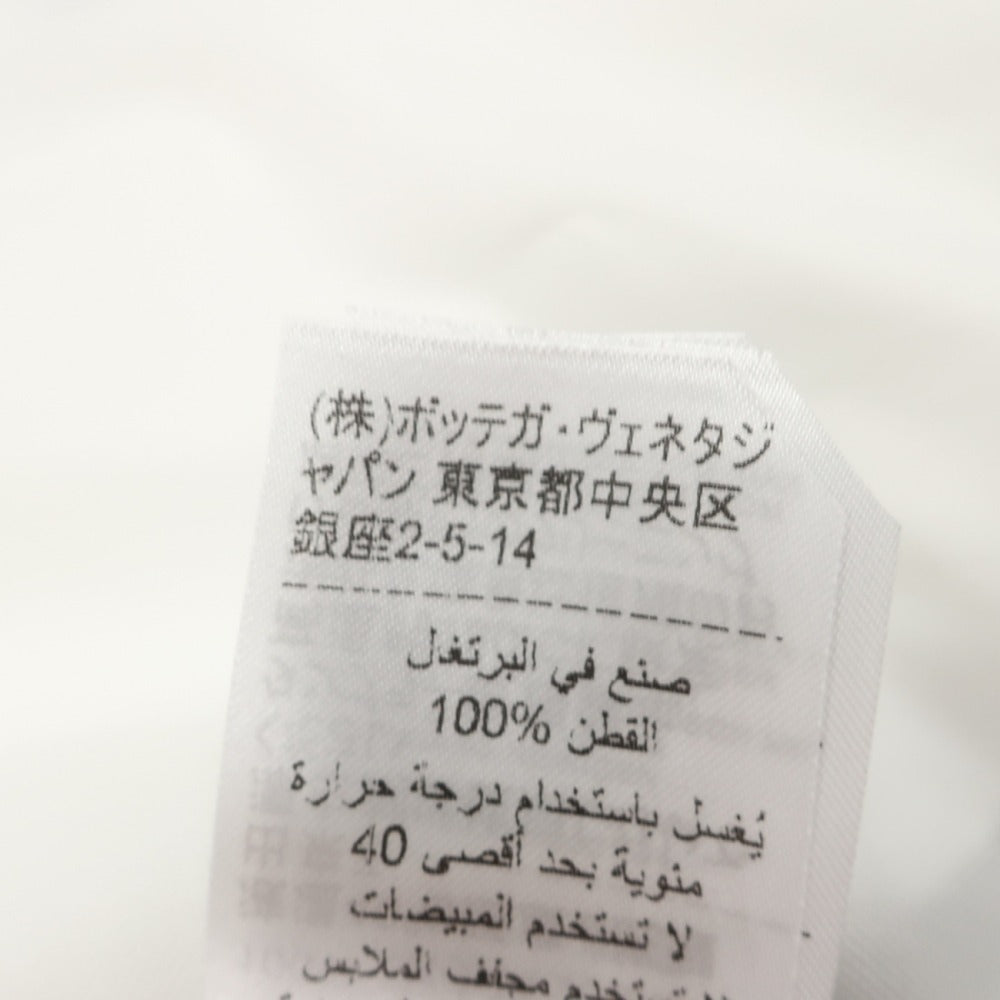 (株)ボッテガ・ヴェネタジ
ャパン 東京都中央区
銀座2-5-14
صنع في البرتغال
القطن %100
يُغسل باستخدام درجة حرارة
مئوية بحد أقصى 40
لا تستخدم المبيضات
لا تستخدم مجفف الملابس